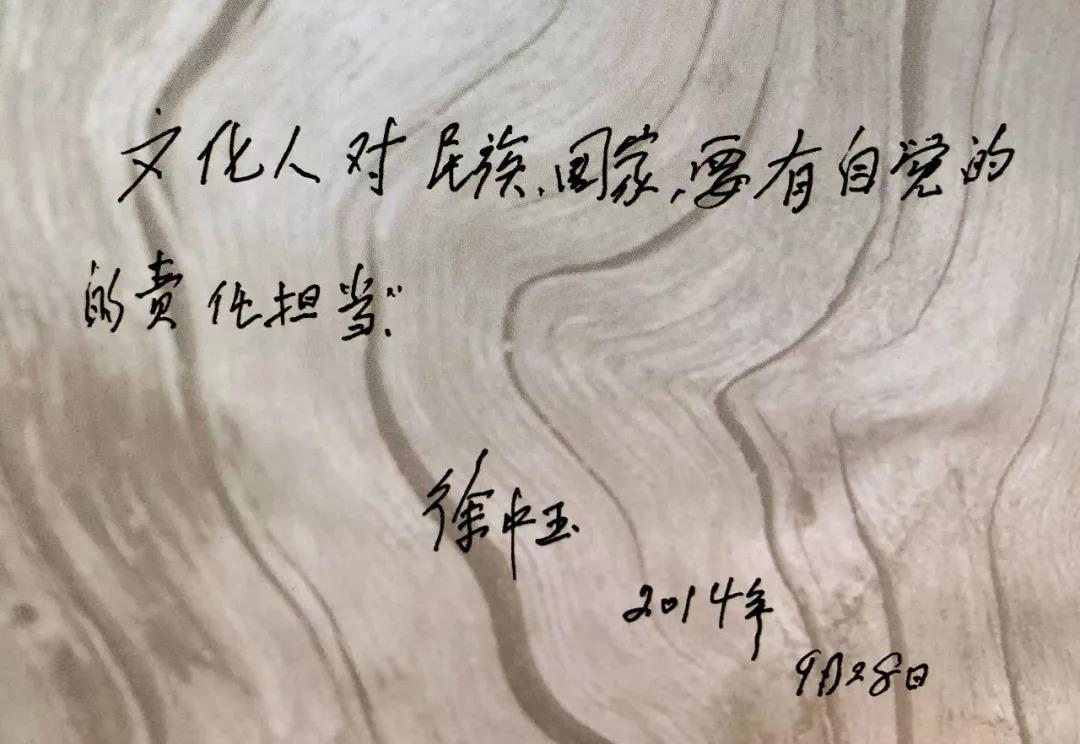 文化人对民族、国家,要有自觉的
的责任担当.
徐中玉
2014年
9月28日